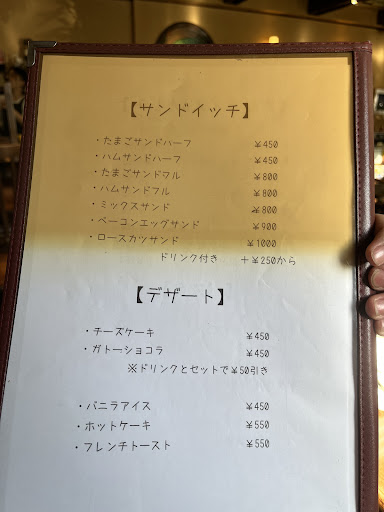 【サンドイッチ】
・たまごサンドハーフ ￥450
・ハムサンドハーフ ￥450
・たまごサンドフル ￥800
・ハムサンドフル ￥800
・ミックスサンド ￥800
・ベーコンエッグサンド ￥900
・ロースカツサンド ￥1000
ドリンク付き ＋￥250から
【デザート】
・チーズケーキ ￥450
・ガトーショコラ ￥450
※ドリンクとセットで￥50引き
・バニラアイス ￥450
・ホットケーキ ￥550
・フレンチトースト ￥550